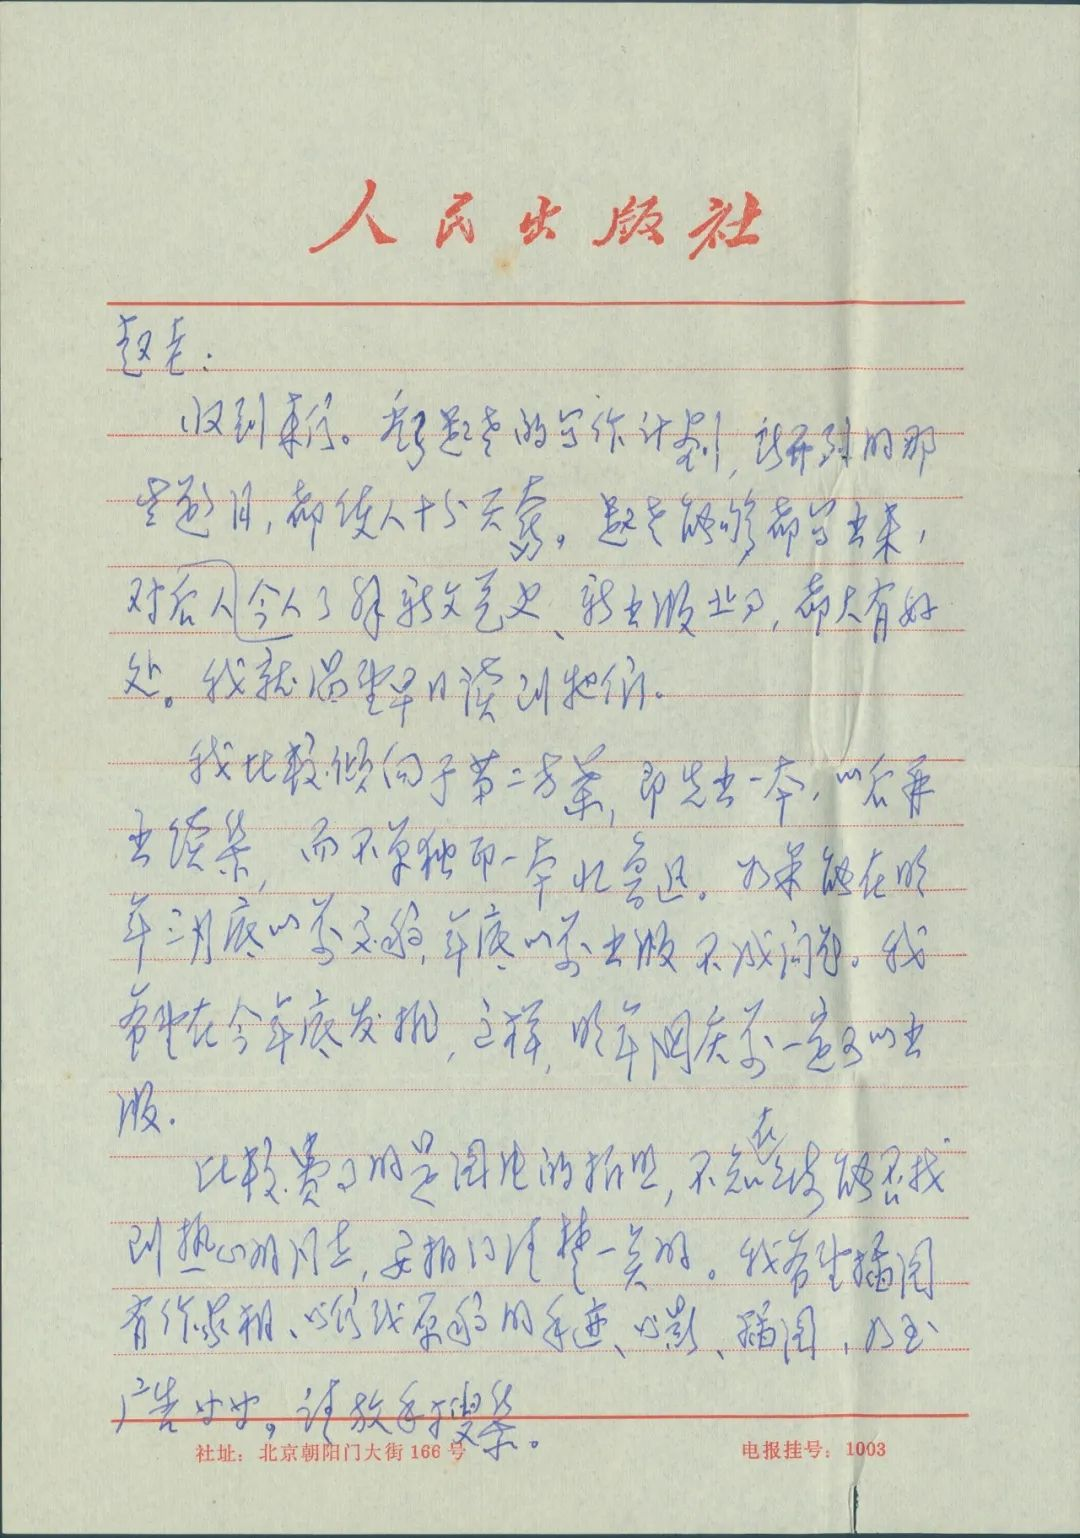 人民出版社
赵老：
收到来信。看了赵老的写作计划，所开列的那
些题目，都使人十分关心。赵老能够都写出来，
对后人今人了解新文艺史、新出版业等，都大有好
处。我就渴望早日读到他们。
我比较倾向于第二方案，即先出一本，以后再
出续集，而不单独印一本忆鲁迅。如果能在明
年三月底以前交稿，年底以前出版不成问题。我
希望在今年底发排，这样，明年国庆前一定可以出
版。
比较费事的是图片的拍照，不知在上海能否找
到热心的同志，安排得清楚一点的。我希望插图
有作家相、书信或原稿的手迹、书影、插图，乃至
广告等等。请放手搜集。
社址：北京朝阳门大街166号
电报挂号：1003